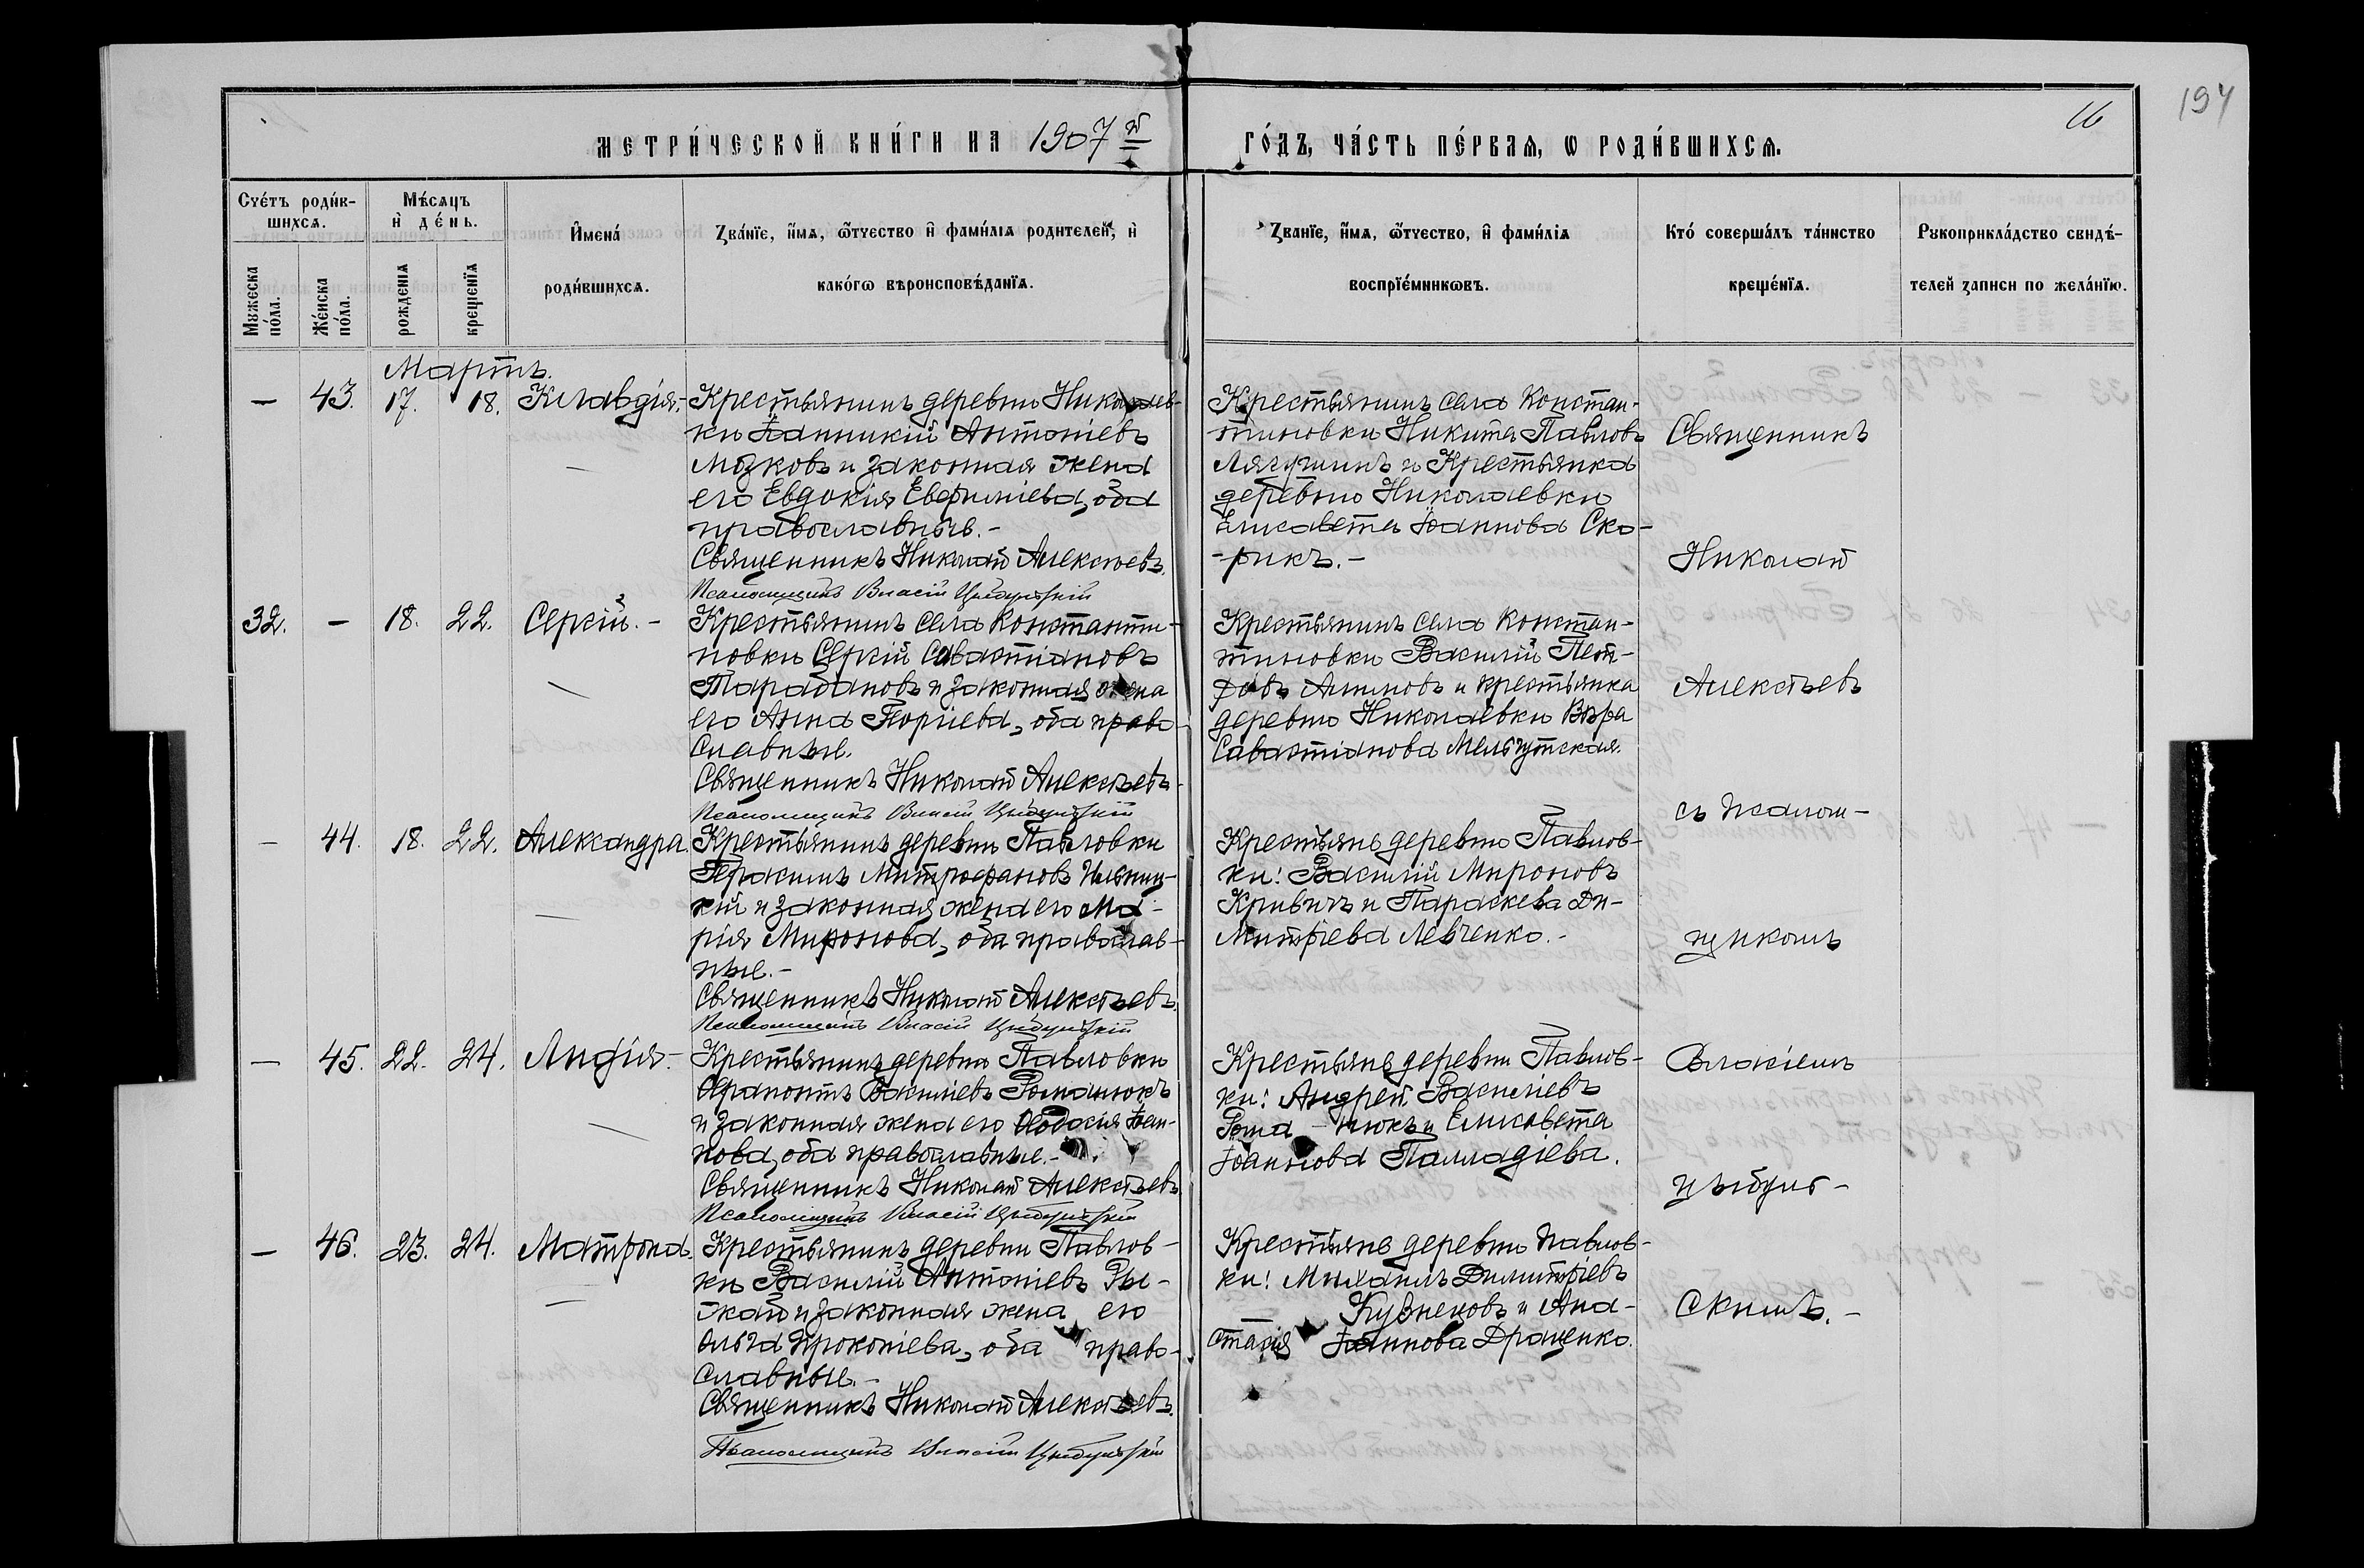 194
16
МЕТРИ́ЧЕСКОЙ КНИ́ГИ НА 1907й ГО́ДЪ, ЧА́СТЬ ПЕ́РВАѦ, Ѡ РОДИ́ВШИХСѦ.
Счéтъ роди́в-
шихсѧ.
Мѣ́сѧцъ
и҆ де́нь.
И҆мена́
роди́вшихсѧ.
Зва́нїе, и҆́мѧ, ѻ҆́тчество и҆ фами́лїѧ родителей, и҆
како́гѡ вѣроисповѣ́данїѧ.
Зва́нїе, и҆́мѧ, ѻ҆́тчество, и҆ фами́лїѧ
воспрїе́мникѡвъ.
Кто́ соверша́лъ та́инство
креще́нїѧ.
Рꙋкоприкла́дство свидѣ́-
телей записи по жела́нїю.
Мꙋжеска
по́ла.
Же́нска
по́ла.
рожденїѧ
крещенїѧ
Мартъ.
— 43. 17. 18. Клавдія.-
Крестьянинъ деревни Николаев-
ки Іанникій Антоніевъ
Мозковъ и законная жена
его Евдокія Евфиміева, оба
православные.-
Священникъ Николай Алексѣевъ.
Псаломщикъ Власій Цыбульскій
Крестьянинъ села Констан-
тиновки Никита Павловъ
Лягушинъ и Крестьянка
деревни Николаевки
Елисавета Іоаннова Ско-
-рикъ.-
Священникъ
Николай
32. — 18. 22. Сергій.-
Крестьянинъ села Константи-
новки Сергій Савастіановъ
Тарабановъ и законная жена
его Анна Георгіева, оба право-
славные.
Священникъ Николай Алексѣевъ
Псаломщикъ Власій Цыбульскій
Крестьянинъ села Констан-
тиновки Василій Пет-
ровъ и крестьянка
деревни Николаевки Вѣра
Савастіанова Мельгутская.
Алексѣевъ
съ псалом-
— 44. 18. 22. Александра.
Крестьянинъ деревни Павловки
Герасимъ Митрофановъ Ильниц-
кій и законная жена его Ма-
рія Миронова, оба православ-
ные.-
Священникъ Николай Алексѣевъ.
Псаломщикъ Власій Цыбульскій
Крестьяне деревни Павлов-
ки: Василій Мироновъ
Кривичъ и Параскева Ди-
митріева Левченко.-
щикомъ
— 45. 22. 24. Лидія.-
Крестьянинъ деревни Павловки
Ѳерапонтъ Василіевъ Романюкъ
и законная жена его Ѳеодосія Іоан-
нова, оба православные.-
Священникъ Николай Алексѣевъ
Псаломщикъ Власій Цыбульскій
Крестьяне деревни Павлов-
ки: Андрей Василіевъ
Рома - нюкъ и Елисавета
Іоаннова Палладіева.
Власіемъ
Цыбуль-
— 46. 23. 24. Матрона.
Крестьянинъ деревни Павлов-
ки Василій Антоніевъ Ры-
жай и законная жена его
Ольга Прокопіева, оба право-
славные.-
Священникъ Николай Алексѣевъ.
Псаломщикъ Власій Цыбульскій
Крестьяне деревни Павлов-
ки: Михаилъ Димитріевъ
Кузнецовъ и Ана-
стасія Іоаннова Драценко.
скимъ.-